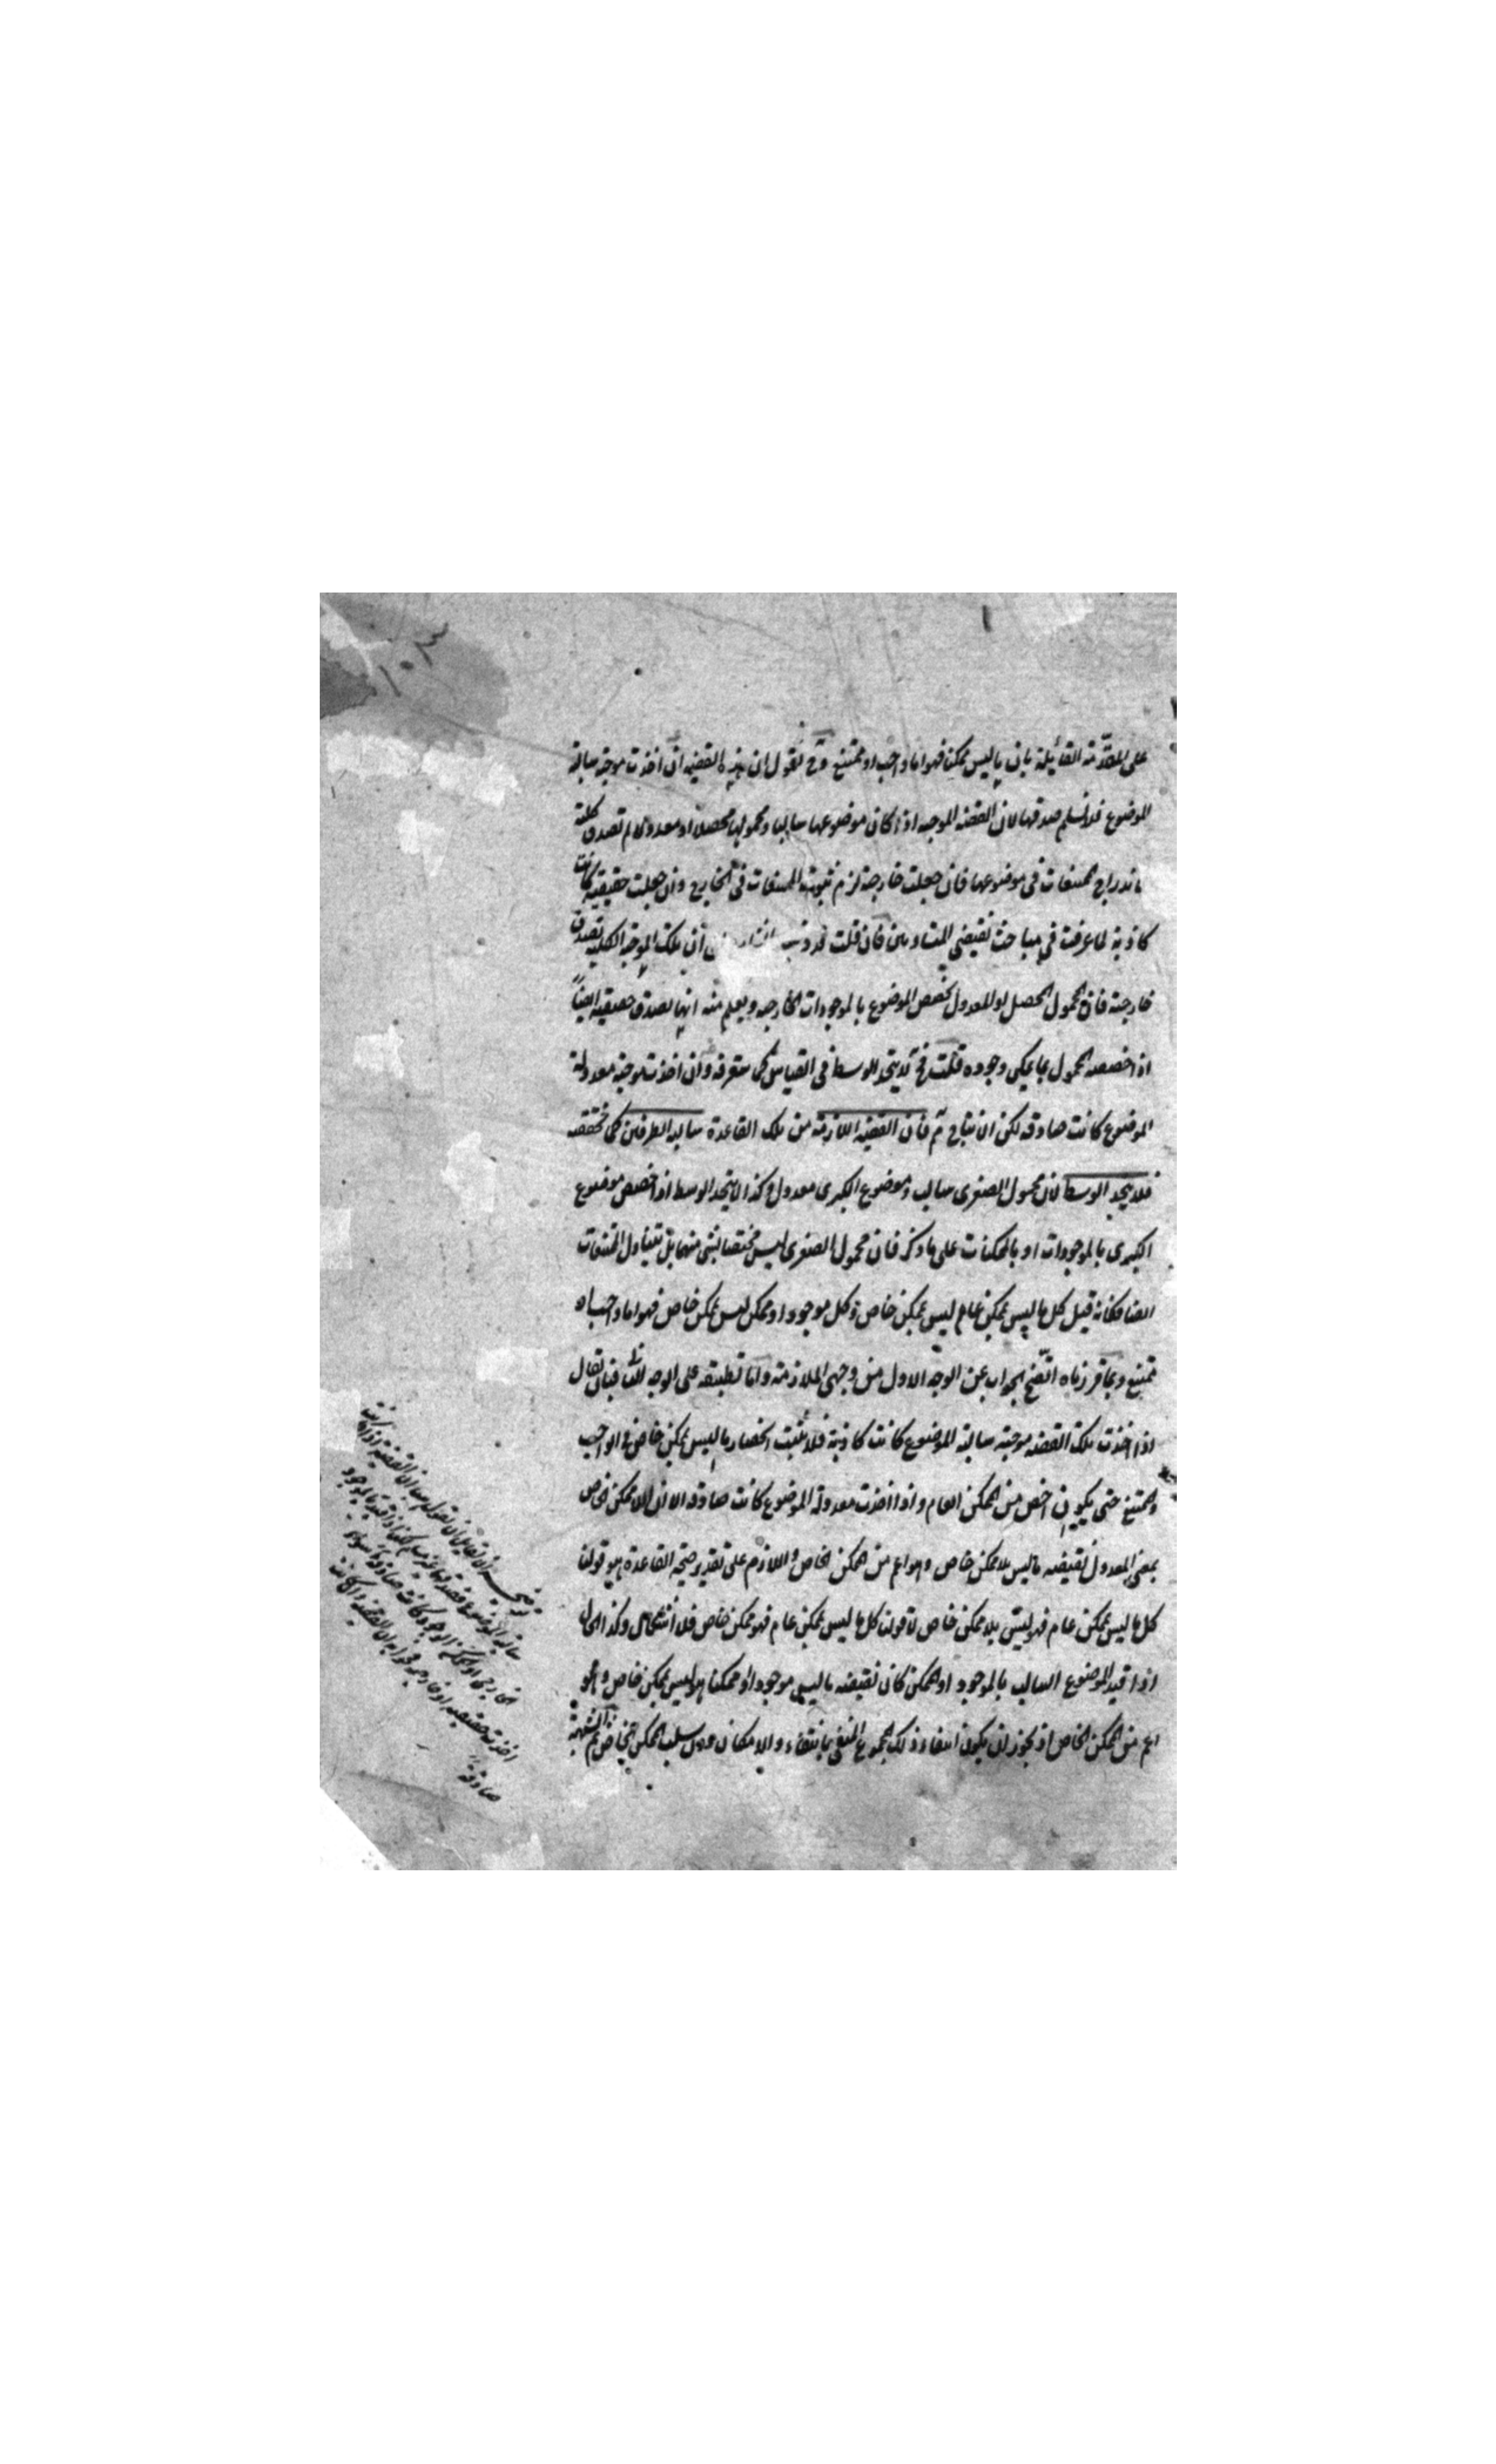 ١٠٣
على المقدّمة القائلة بان ما ليس بممكن فهو اما واجب او ممتنع وح نقول ان هذه القضيه ان اخذت موجبة سالبة
الموضوع فلا نسلم صدقها لان القضيه الموجبه اذا كان موضوعها سالبا ومحمولها محصلا او معدولا لم تصدق كلية
باندراج الممتنعات فى موضوعها فان جعلت خارجية لزم ثبوت الممتنعات فى الخارج وان جعلت حقيقية كانت
كاذبة لما عرفت فى مباحث نقيضى المتساويين فان قلت قد ان تلك الموجبة الكليه تصدق
خارجية فان المحمول المحصل او المعدول يخصص الموضوع بالموجودات الخارجيه ويعلم منه انها تصدق حقيقية ايضاً
اذا خصصه المحمول بما يمكن وجوده قلت فح لا يتحد الوسط فى القياس كما ستعرفه وان اخذت موجبة معدولة
الموضوع كانت صادقه لكن الانتاج ثم فان القضيه اللازمة من تلك القاعدة سالبه الطرفين كما تحققته
فلا يتحد الوسط لان محمول الصغرى سالب وموضوع الكبرى معدول وكذا لا يتحد الوسط اذا خصص موضوع
الكبرى بالموجودات او بالممكنات على ما ذكر فان محمول الصغرى ليس مختصا بشى منهما بل يتناول الممتنعات
ايضا فكانه قيل كل ما ليس بممكن عام ليس بممكن خاص وكل موجود او ممكن ليس بممكن خاص فهو اما واجب او
ممتنع وبما قررناه اتضح الجواب عن الوجه الاول من وجهى الملازمة واما تطبيقه على الوجه الثانى فبان يقال
اذا اخذت تلك القضيه موجبة سالبة الموضوع كانت كاذبة فلا يثبت انحصار ما ليس بممكن خاص فى الواجب
والممتنع حتى يكون اخص من الممكن العام واذا اخذت معدولة الموضوع كانت صادقه الا ان اللاممكن الخاص
بمعنى المعدول نقيضه ما ليس بلا ممكن خاص وهو اعم من الممكن الخاص واللازم على تقدير صحة القاعدة هو قولنا
كل ما ليس بممكن عام فهو ليس بلا ممكن خاص لا قولنا كل ما ليس بممكن عام فهو ممكن خاص فلا استحاله وكذا الحال
اذا قيد الموضوع السالب بالموجود او الممكن كان نقيضه ما ليس موجودا او ممكنا هو ليس بممكن خاص وهو
اعم من الممكن الخاص اذ يجوز ان يكون انتفاء ذلك المجموع المنفى بانتفاء والامكان سلب الممكن الخاص ثم الشبهة
توضيحه ان القضية اذا كانت
سالبة الموضوع فصدقها غير مسلم اذا قيد بالموجود
الخارجى او الممكن الوجود كانت صادقة سواء
اخذت حقيقيه او خارجيه
صادقة